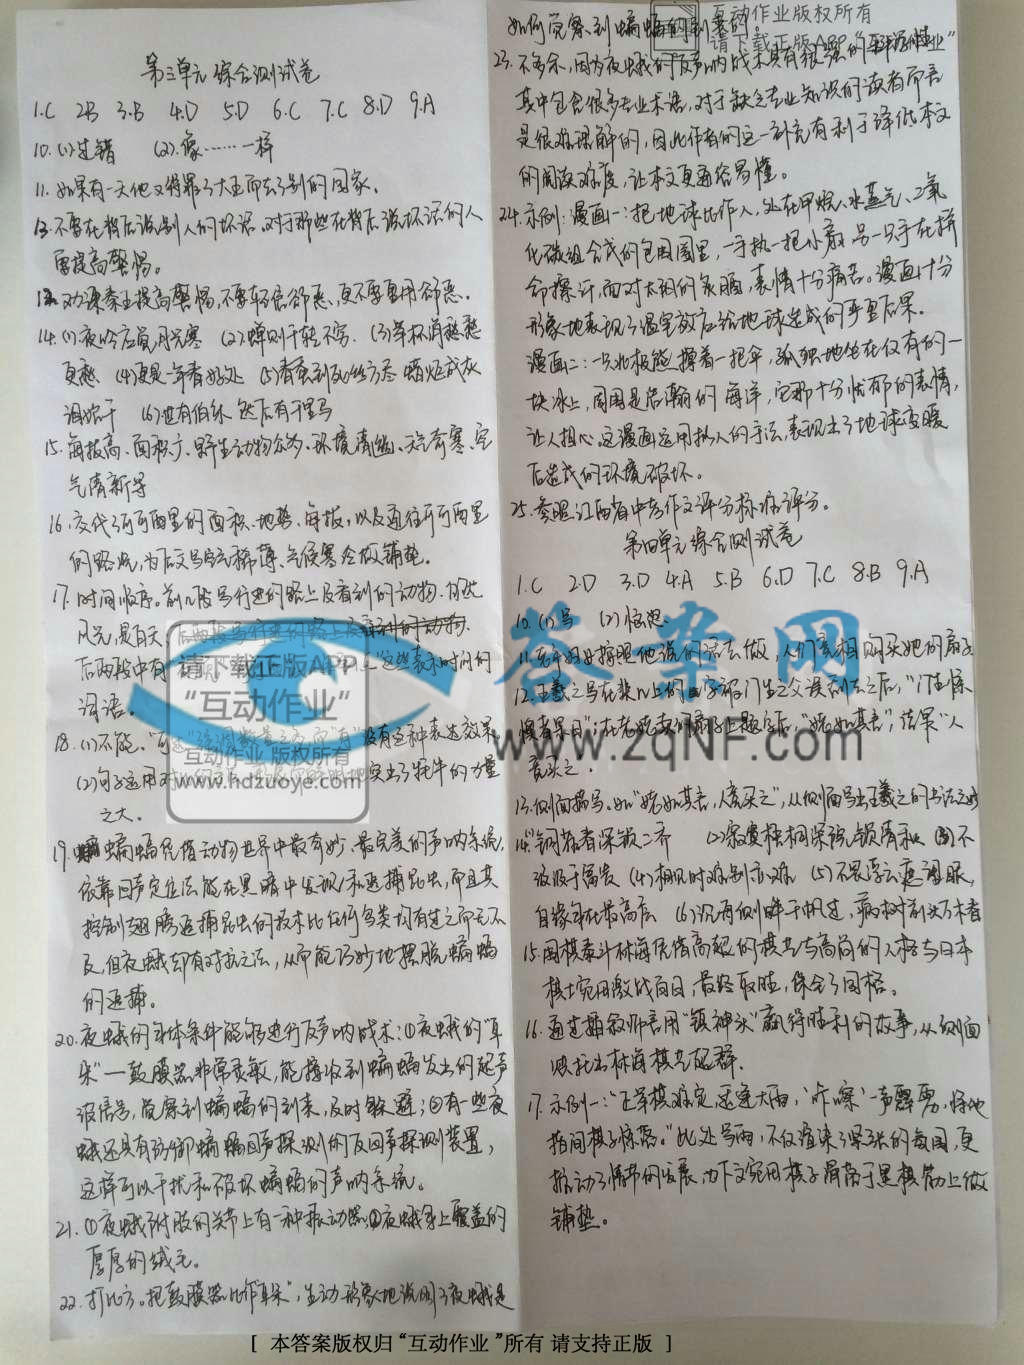 第三单元综合测试卷
1.C 2B 3.B 4.D 5.D 6.C 7.C 8.D 9.A
10.(1)过错 (2).像……一样
11.如果有一天他又得罪了大王而去了别的国家。
不要在背后说别人的坏话。对于那些在背后说坏话的人
要提高警惕。
劝谏秦王提高警惕,不要轻信郤恶、更不要重用郤恶。
14.(1)夜吟应觉月光寒 (2)蝉则千转不穷. (3)举杯消愁愁
更愁 (4)最是一年春好处 (5)春蚕到死丝方尽 蜡炬成灰
泪始干 (6)世有伯乐 然后有千里马
15.海拔高、面积广、野生动物众多、环境清幽、天气奇寒、空
气清新等
16.交代了可可西里的面积、地势、海拔,以及通往可可西里
的路况,为后文写空气稀薄、气候寒冷做铺垫。
17.时间顺序。前几段写行进的路上及看到的动物、自然
风光,是白天.
后两段中有 这些表示时间的
词语。
18.(1)不能。 没有这种表达效果
(2)句子运用对 突出了牦牛的力量
之大。
19.蝙蝠凭借动物世界中最奇妙、最完美的声呐系统,
依靠回声定位法能在黑暗中发现和追捕昆虫,而且其
控制翅膀追捕昆虫的技术比任何鸟类均有过之而无不
及,但夜蛾却有对抗之法,从而能巧妙地摆脱蝙蝠
的追捕。
20.夜蛾的身体条件能够进行反声呐战术:①夜蛾的“耳
朵”一鼓膜器非常灵敏,能接收到蝙蝠发出的超声
波信号,觉察到蝙蝠的到来,及时躲避;②有一些夜
蛾还具有防御蝙蝠回声探测的反回声探测装置,
这样可以干扰和破坏蝙蝠的声呐系统。
21.①夜蛾足部肢的关节上有一种振动器②夜蛾身上覆盖的
厚厚的绒毛。
22.打比方。把鼓膜器比作“耳朵”,生动形象地说明了夜蛾是
如何觉察到蝙蝠的到来的。
23.不多余,因为夜蛾的反声呐战术具有很强的科学性
其中包含很多专业术语,对于缺乏专业知识的读者而言
是很难理解的,因此作者的这一补充有利于降低本文
的阅读难度,让本文更通俗易懂。
24.示例:漫画一:把地球比作人,处在甲烷、水蒸气、二氧
化碳组合成的包围圈里,一手执一把小扇 另一只手在拼
命擦汗,面对太阳的炙晒,表情十分痛苦。漫画十分
形象地表现了温室效应给地球造成的严重后果。
漫画二:一只北极熊撑着一把伞,孤独地坐在仅有的一
块冰上,周围是浩瀚的海洋,它那十分忧郁的表情,
让人担心。这漫画运用拟人的手法,表现出了地球变暖
后造成的环境破坏。
25.参照江西省中考作文评分标准评分。
第四单元综合测试卷
1.C 2.D 3.D 4.A 5.B 6.D 7.C 8.B 9.A
10.(1)写 (2)惋惜.
11.老妇妇按照他说的话去做,人们竞相购买她的扇子
12.王羲之写在棐几上的字被门生之父误刮去之后,“门生惊
懊者累日”;在老姥卖的扇子上题字后,“姥如其言”,结果“人
竞买之.
13.侧面描写。如“姥如其言,人竞买之”,从侧面写出王羲之的书法之妙
14.“铜雀春深锁二乔 (2)寂寞梧桐深院锁清秋 (3)不
汲汲于富贵 (4)相见时难别亦难 (5)不畏浮云遮望眼,
自缘身在最高层 (6)沉舟侧畔千帆过,病树前头万木春
15.围棋泰斗林海凭借高超的棋艺与高尚的人格与日本
棋士宛田激战百日,最终取胜,保全了国格。
16.通过插叙师言用“镇神头”赢得胜利的故事,从侧面
烘托出林海棋艺超群.
17.示例一:“正举棋难定,适逢大雨,‘咔嚓’一声霹雳,将他
指间棋子惊落。”此处写雨,不仅渲染了紧张的氛围,更
推动了情节的发展,为下文宛田棋子屑落于黑棋筋上做
铺垫。
互动作业版权所有
请下载正版APP“互动作业”
请下载正版APP
“互动作业”
互动作业 版权所有
www.hdzuoye.com
答案网
www.zqNF.com
[ 本答案版权归“互动作业 ”所有 请支持正版 ]